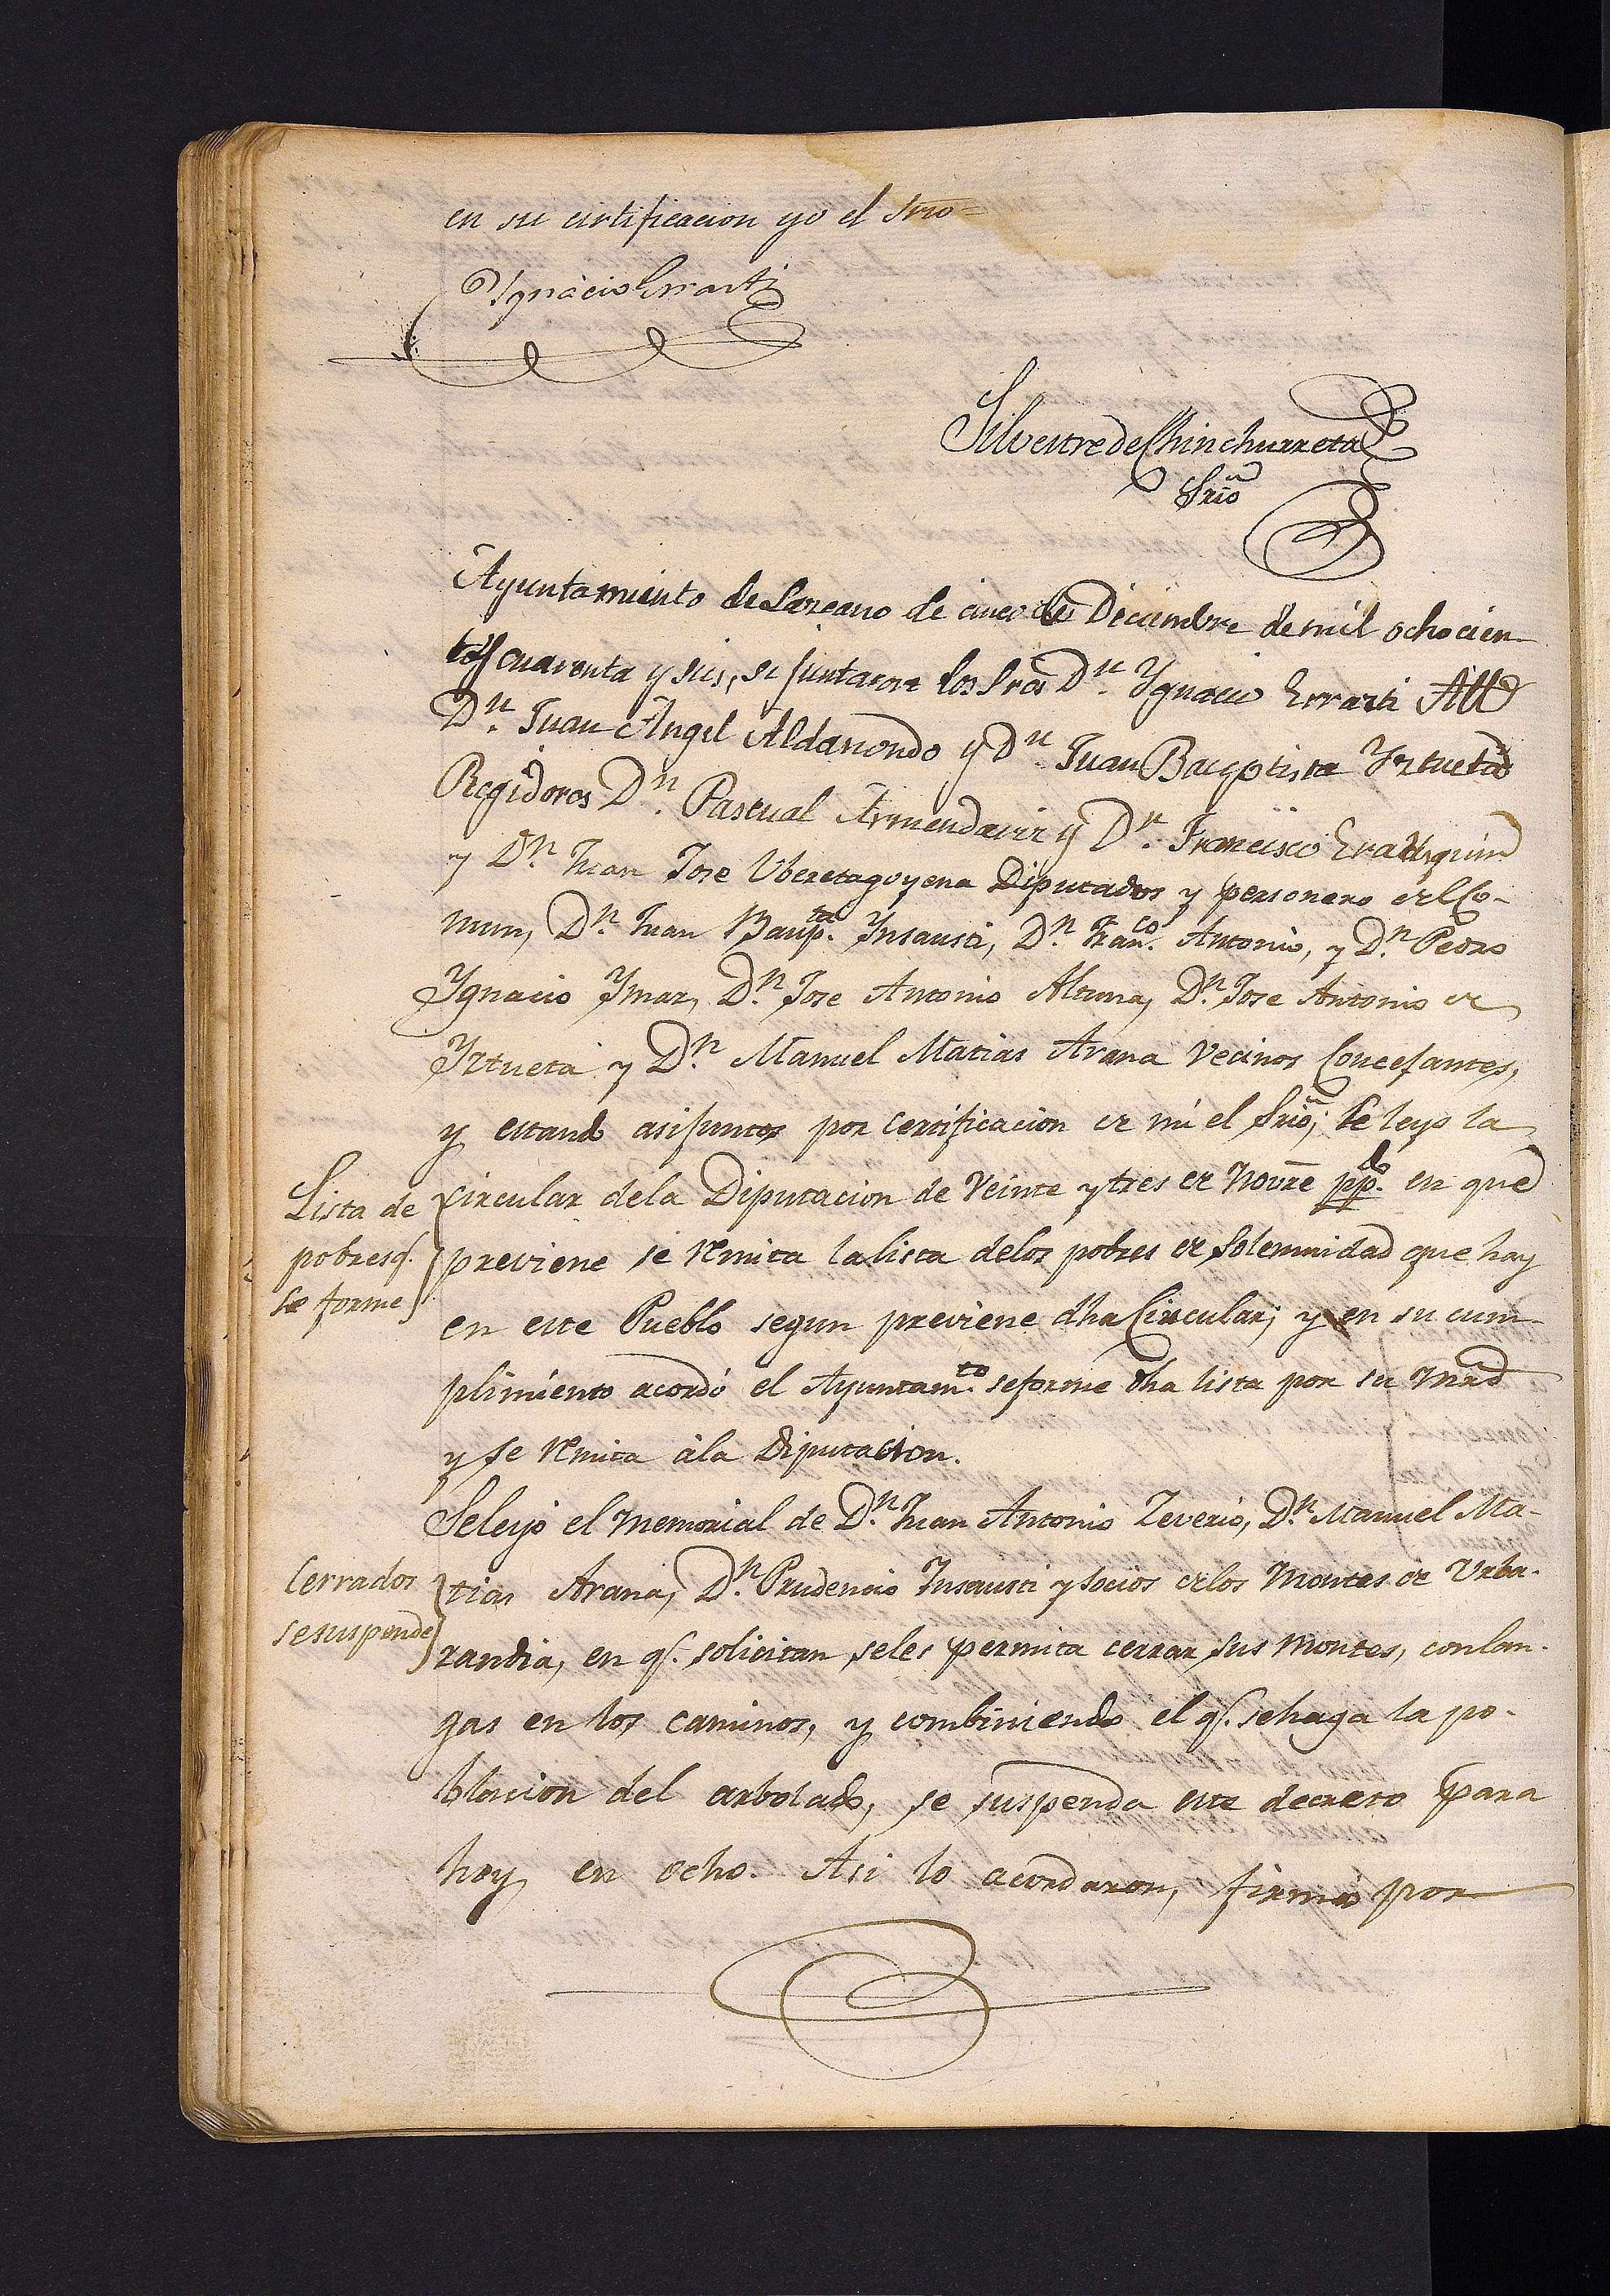 en su certificacion yo el Srio=
Ygnacio Errasti
Silvestre de Chinchurreta
Srio
Ayuntamiento de Lazcano de cinco de Diciembre de mil ochocien-
tos cuarenta y seis, se juntaron los Sres Dn. Ygnacio Errasti Alle
Dn. Juan Angel Aldanondo y Dn. Juan Baupptista Yztueta
Regidores Dn. Pascual Armendariz y Dn. Francisco
y Dn. Juan Jose Uberetagoyena Diputados y personero del Co-
mun, Dn. Juan Baupta. Insausti, Dn. Franco. Antonio, y Dn. Pedro
Ygnacio Ymaz, Dn. Jose Antonio Altuna, Dn. Jose Antonio de
Yztueta y Dn. Manuel Matias Arana Vecinos Concejantes,
y estando asi juntos por certificacion de mi el Srio; se leyo la
Lista de
pobres q.
se forme
circular dela Diputacion de Veinte y tres de Novre ppdo. en que
previene se remita la lista delos pobres de Solemnidad que hay
en este Pueblo segun previene dha Circular; y en su cum-
plimiento acordó el Ayuntamto. se forme dha lista por su Mrd
y se remita àla Diputacion.
Seleyo el Memorial de Dn. Juan Antonio Zeverio, Dn. Manuel Ma-
Cerrados
se suspende
tias Arana, Dn. Prudencio Insausti y socios delos Montes de Urba-
randia, en q. solicitan seles permita cerrar sus Montes, con lan-
gas en los caminos, y combiniendo el q. se haga la po-
blacion del arbolado, se suspenda este decreto para
hoy en ocho. Asi lo acordaron, firmó por